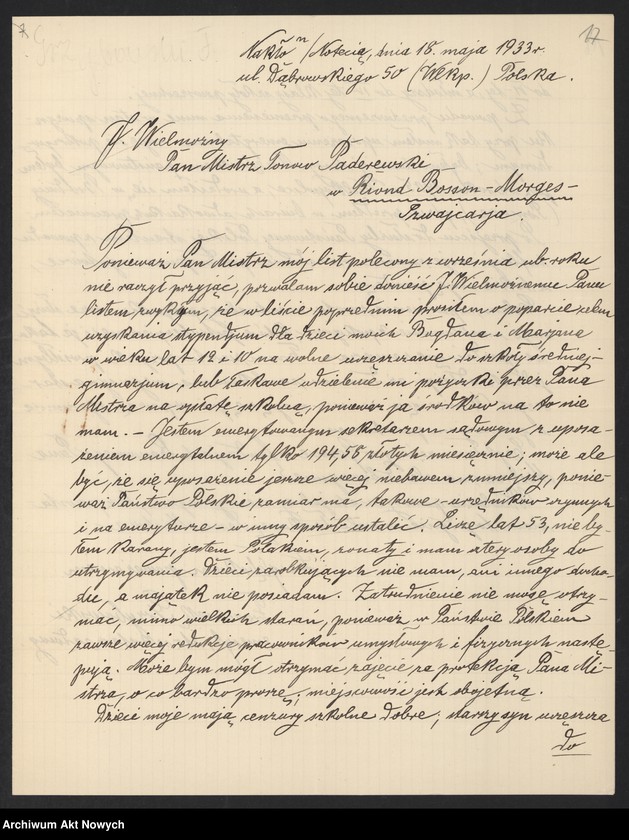 17
Nakło n/Notecią, dnia 18. maja 1933 r.
ul. Dąbrowskiego 50 (Wlkp.) Polska.
J. Wielmożny
Pan Mistrz Tonów Paderewski
w Riond Bosson – Morges –
Szwajcarja.
Ponieważ Pan Mistrz mój list polecony z września ub. roku
nie raczył przyjąć, pozwalam sobie donieść J. Wielmożnemu Panu
listem zwykłym, że w liście poprzednim prosiłem o poparcie celem
uzyskania stypendjum dla dzieci moich Bogdana i Marjana
w wieku lat 12 i 10 na wolne uczęszczanie do szkoły średniej –
gimnazjum, lub łaskawe udzielenie mi pożyczki przez Pana
Mistrza na opłatę szkolną, ponieważ ja środków na to nie
mam. – Jestem emerytowanym sekretarzem sądowym z uposa-
żeniem emerytalnem tylko 194,56 złotych miesięcznie; może ale
być, że się uposażenie jeszcze więcej niebawem zmniejszy, ponie-
waż Państwo Polskie zamiar ma, takowe – urzędników czynnych
i na emeryturze – w inny sposób ustalić. Liczę lat 53, nie by-
łem karany, jestem Polakiem, żonaty i mam cztery osoby do
utrzymywania. Dzieci zarobkujących nie mam, ani innego docho-
du, a majątek nie posiadam. Zatrudnienie nie mogę otrzy-
mać, mimo wielkich starań, ponieważ w Państwie Polskiem
zawsze więcej redukcje pracowników umysłowych i fizycznych nastę-
pują. Może bym mógł otrzymać zajęcie za protekcją Pana Mi-
strza, o co bardzo proszę; miejscowość jest obojętną.
Dzieci moje mają cenzury szkolne dobre; starszy syn uczęszcza
do
Archiwum Akt Nowych